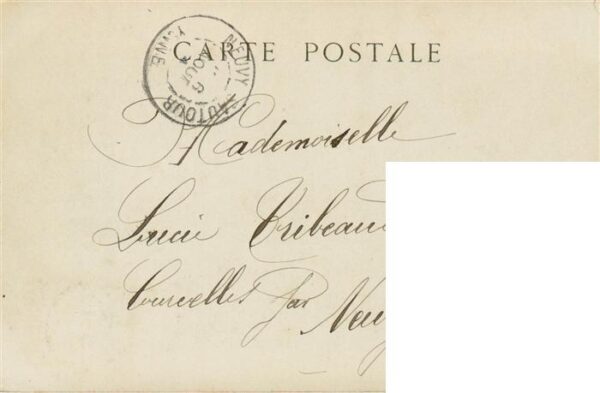 CARTE POSTALE
NEUVY SAUTOUR
YONNE
6
AOUT
Mademoiselle
Lucie Tribeau
Courcelles par Neuv